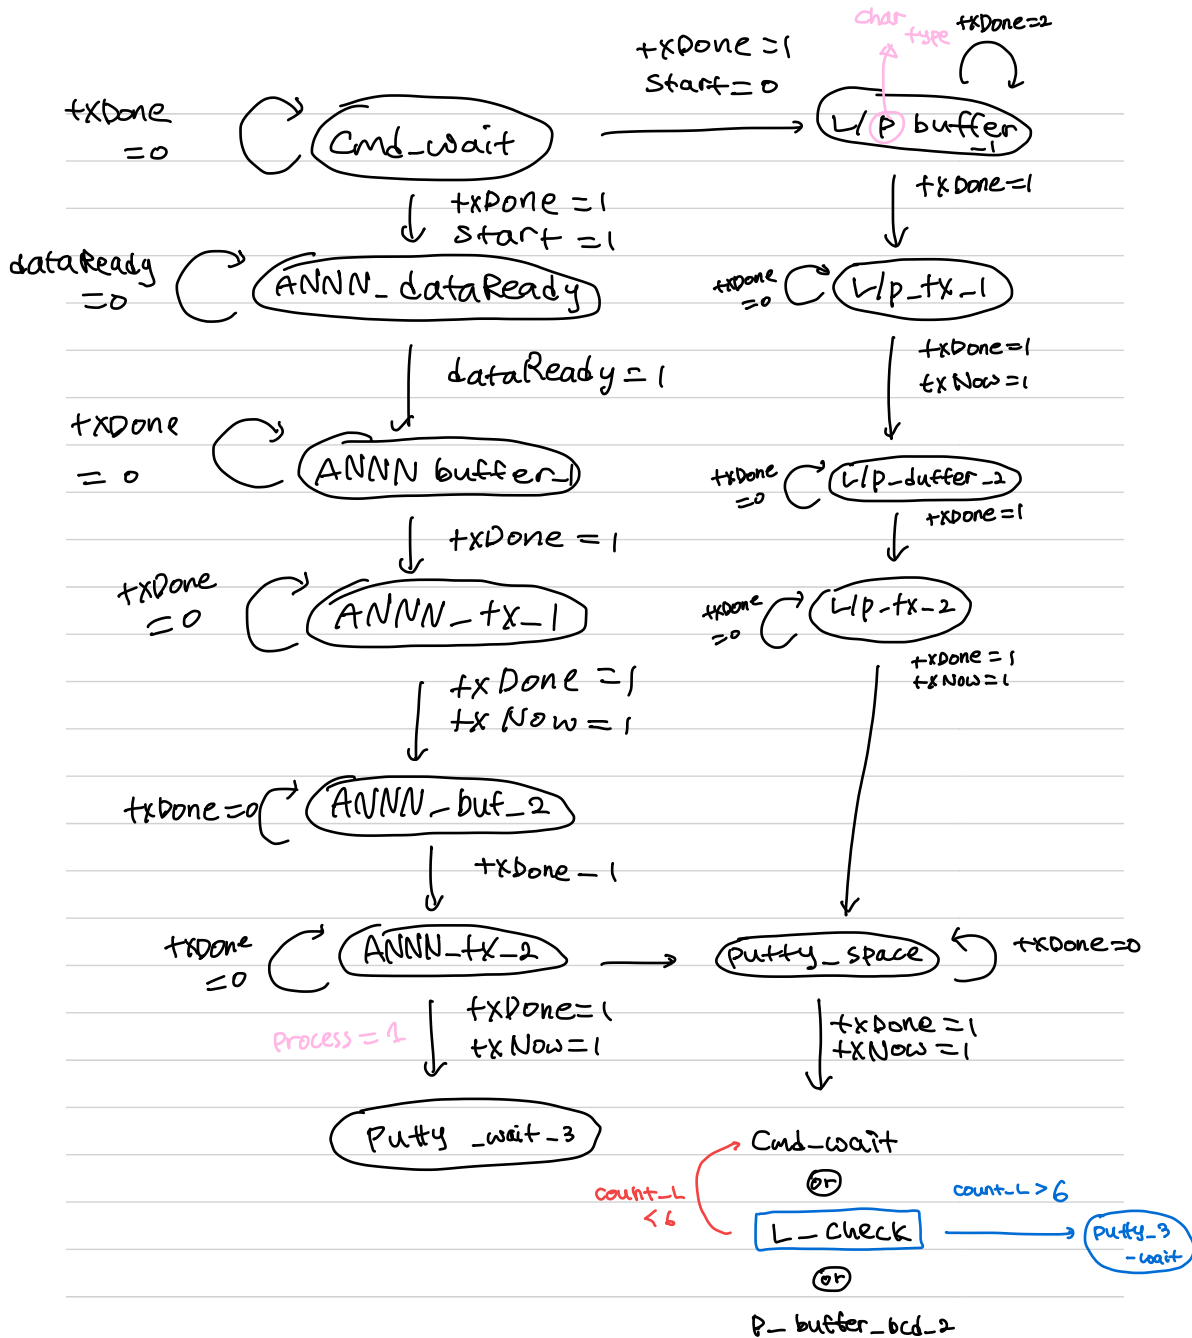 char
type
txDone=2
txDone=1
Start=0
txDone
=0
Cmd_wait
L/P buffer
_1
txDone=1
txDone=1
Start=1
dataReady
=0
ANNN_dataReady
txDone
=0
L/p_tx_1
dataReady=1
txDone=1
txNow=1
txDone
=0
ANNN buffer_1
txDone
=0
L/p_duffer_2
txDone=1
txDone=1
txDone
=0
ANNN_tx_1
txDone
=0
L/p_tx_2
txDone=1
txNow=1
txDone=1
txNow=1
txDone=0
ANNN_buf_2
txDone_1
txDone
=0
ANNN_tx_2
putty_space
txDone=0
Process=1
txDone=1
txNow=1
txDone=1
txNow=1
Putty_wait_3
Cmd_wait
or
count_L
<6
L_check
count_L>6
putty_3
-wait
or
P_buffer_bcd_2